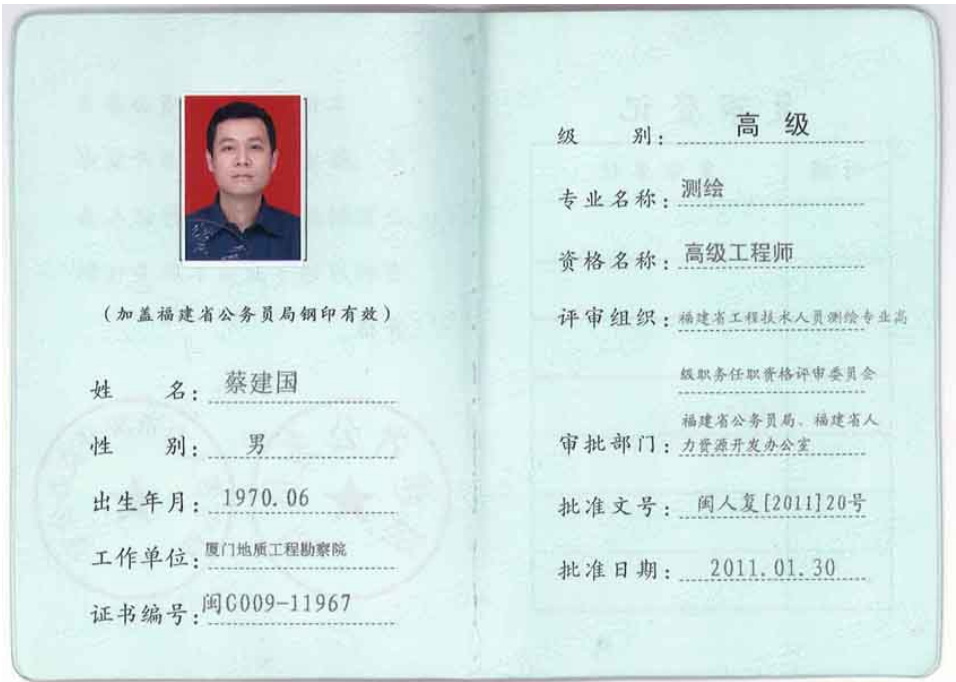 (加盖福建省公务员局钢印有效)
姓 名：蔡建国
性 别：男
出生年月：1970.06
工作单位：厦门地质工程勘察院
证书编号：闽C009-11967
级 别：高 级
专业名称：测绘
资格名称：高级工程师
评审组织：福建省工程技术人员测绘专业高
级职务任职资格评审委员会
福建省公务员局、福建省人
审批部门：力资源开发办公室
批准文号：闽人复[2011]20号
批准日期：2011.01.30